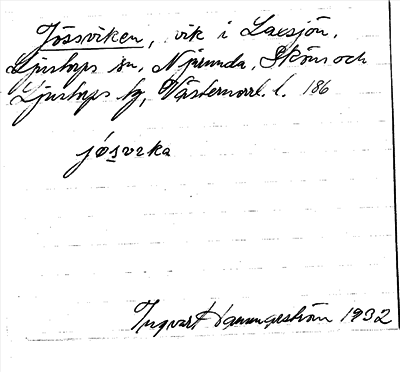 Jössviken, vik i Laxsjön,
Ljustorps sn, Njurunda, Sköns och
Ljustorps tg, Västernorrl. l. 186
jósvika
Ingvart Hammarström 1932